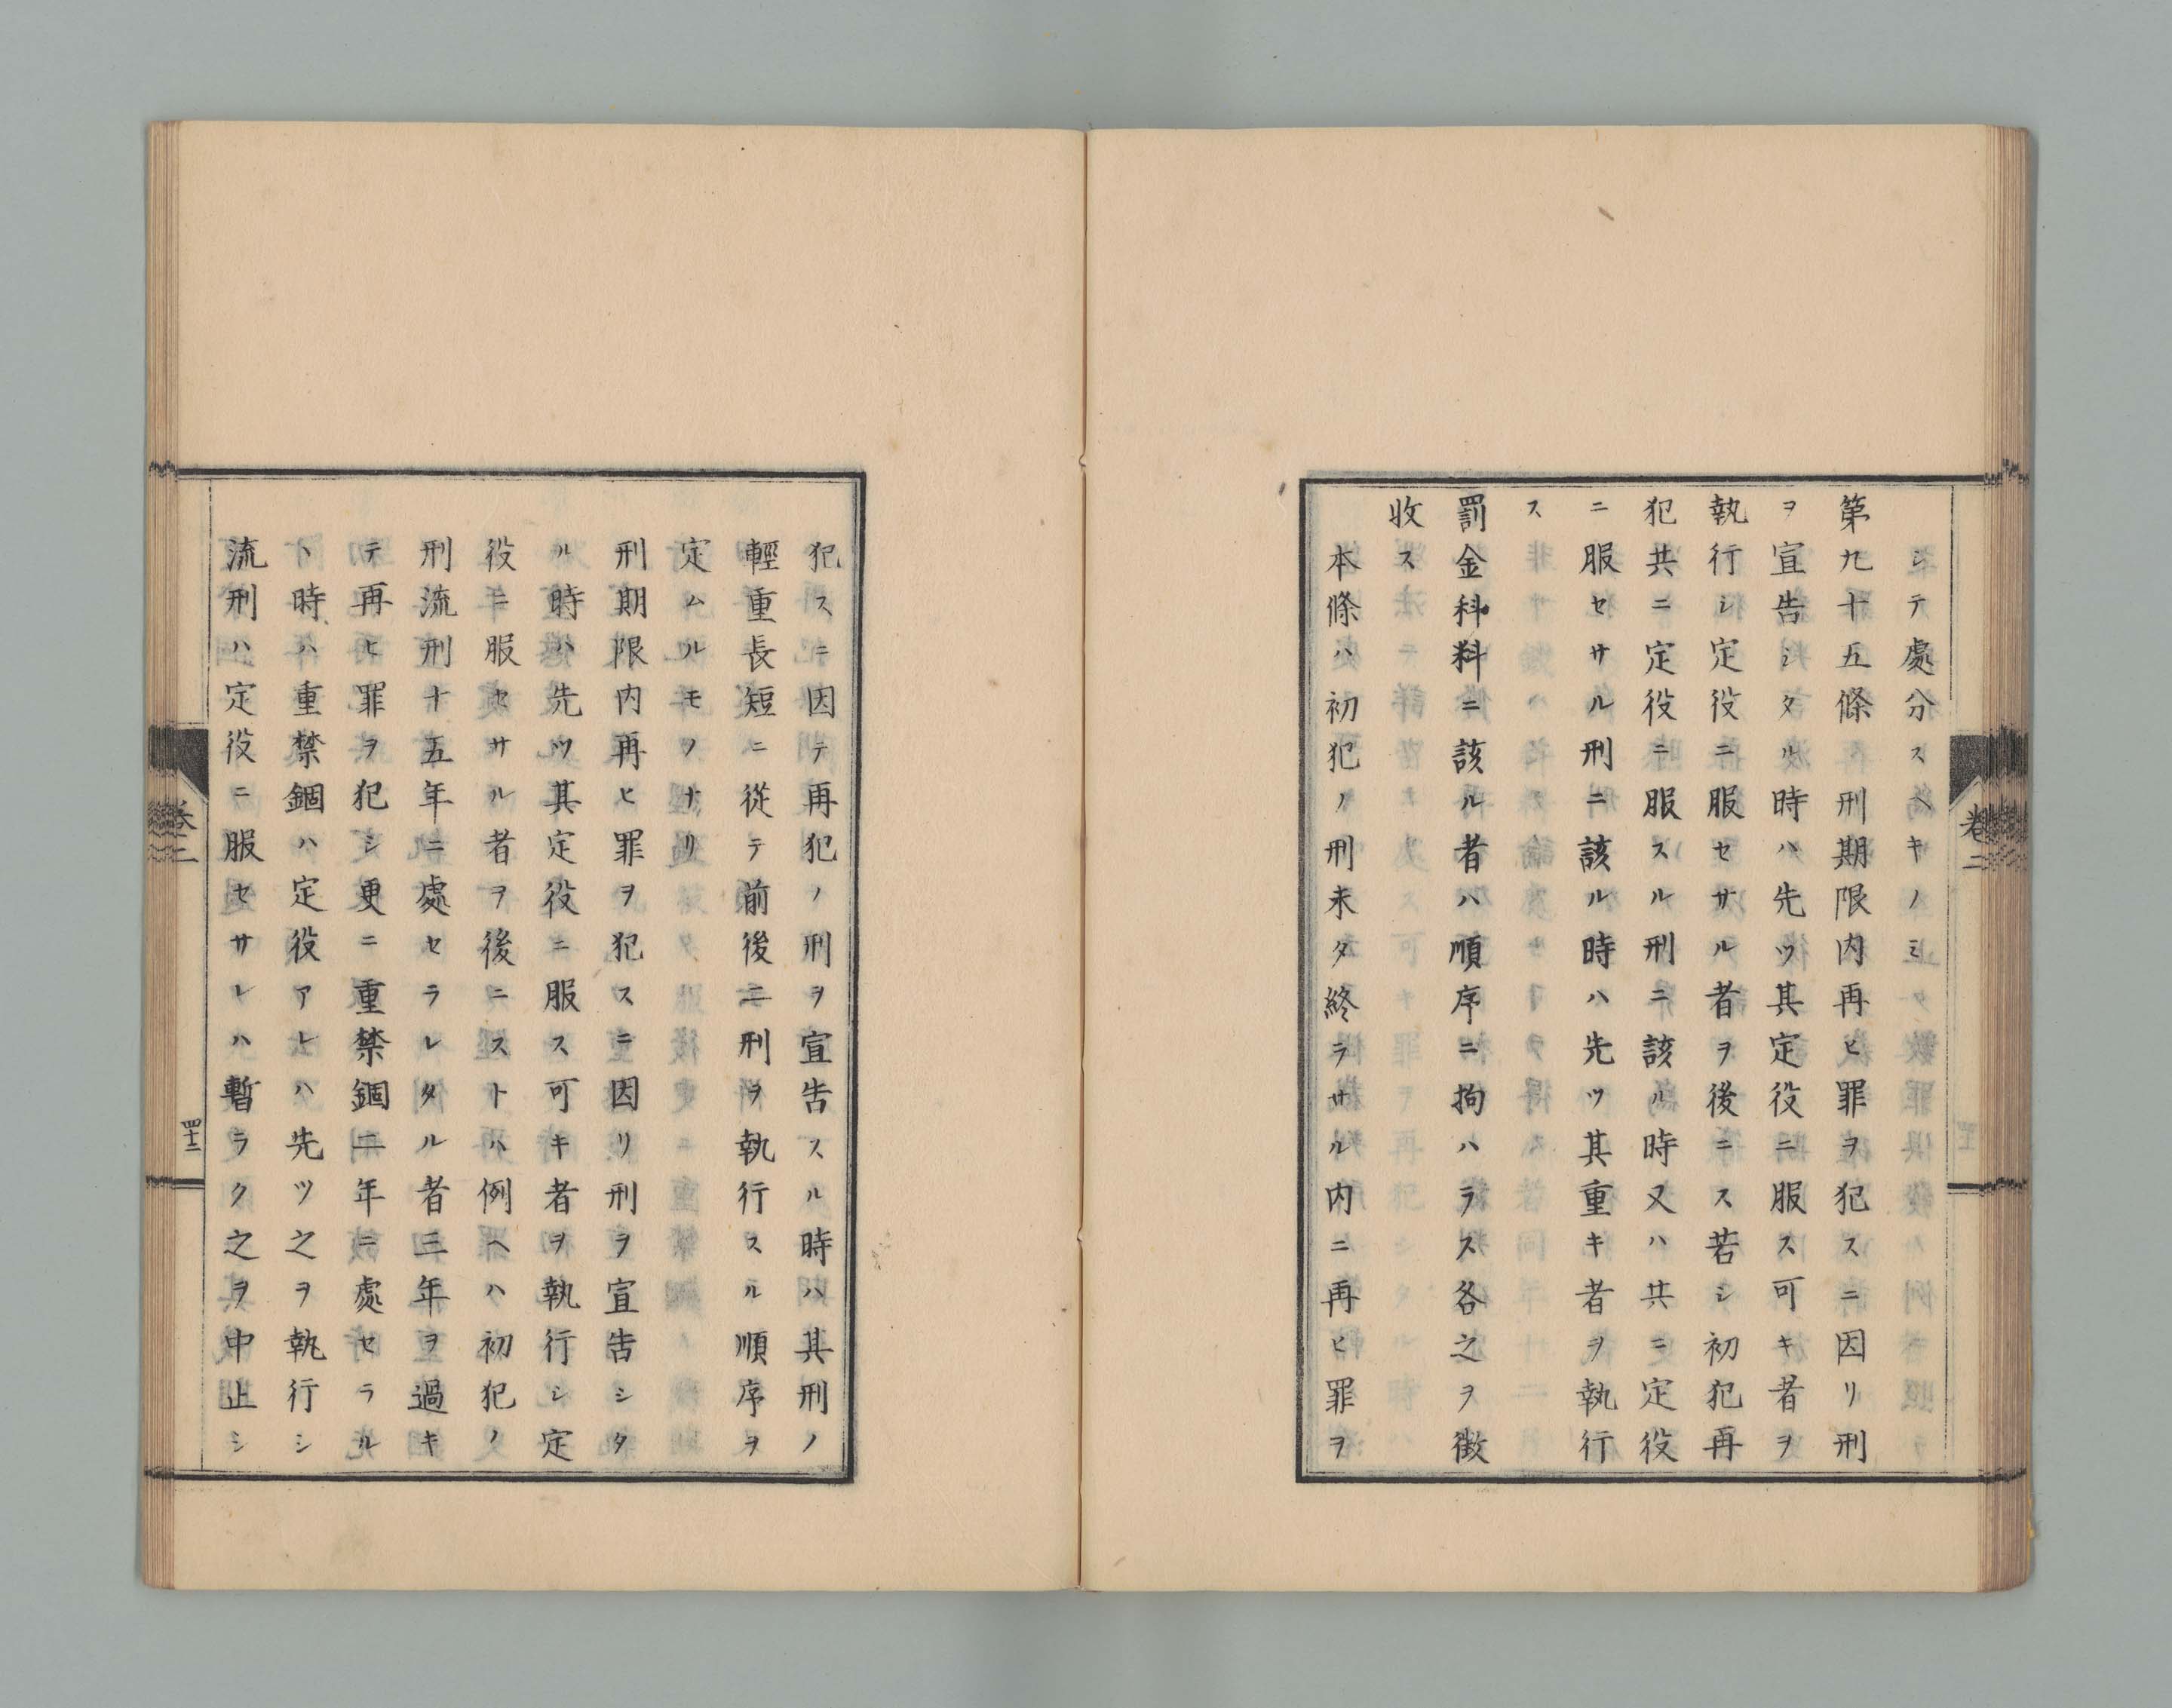 シテ處分スヘキノミ
第九十五條刑期限内再ヒ罪ヲ犯スニ因リ刑
ヲ宣告シタル時ハ先ツ其定役ニ服ス可キ者ヲ
執行シ定役ニ服セサル者ヲ後ニス若シ初犯再
犯共ニ定役ニ服スル刑ニ該ル時又ハ共ニ定役
ニ服セサル刑ニ該ル時ハ先ツ其重キ者ヲ執行
ス
罰金科料ニ該ル者ハ順序ニ拘ハラス各之ヲ徴
收ス
本條ハ初犯ノ刑未タ終ラサル内ニ再ヒ罪ヲ
卷二
犯スニ因テ再犯ノ刑ヲ宣告スル時ハ其刑ノ
輕重長短ニ從テ前後ニ刑ヲ執行スル順序ヲ
定ムルモノナリ
刑期限内再ヒ罪ヲ犯スニ因リ刑ヲ宣告シタ
ル時ハ先ツ其定役ニ服ス可キ者ヲ執行シ定
役ニ服セサル者ヲ後ニストハ例ヘハ初犯ノ
刑流刑十五年ニ處セラレタル者三年ヲ過キ
テ再ヒ罪ヲ犯シ更ニ重禁錮二年ニ處セラル
ヽ時ハ重禁錮ハ定役アレハ先ツ之ヲ執行シ
流刑ハ定役ニ服セサレハ暫ラク之ヲ中止シ
卷二